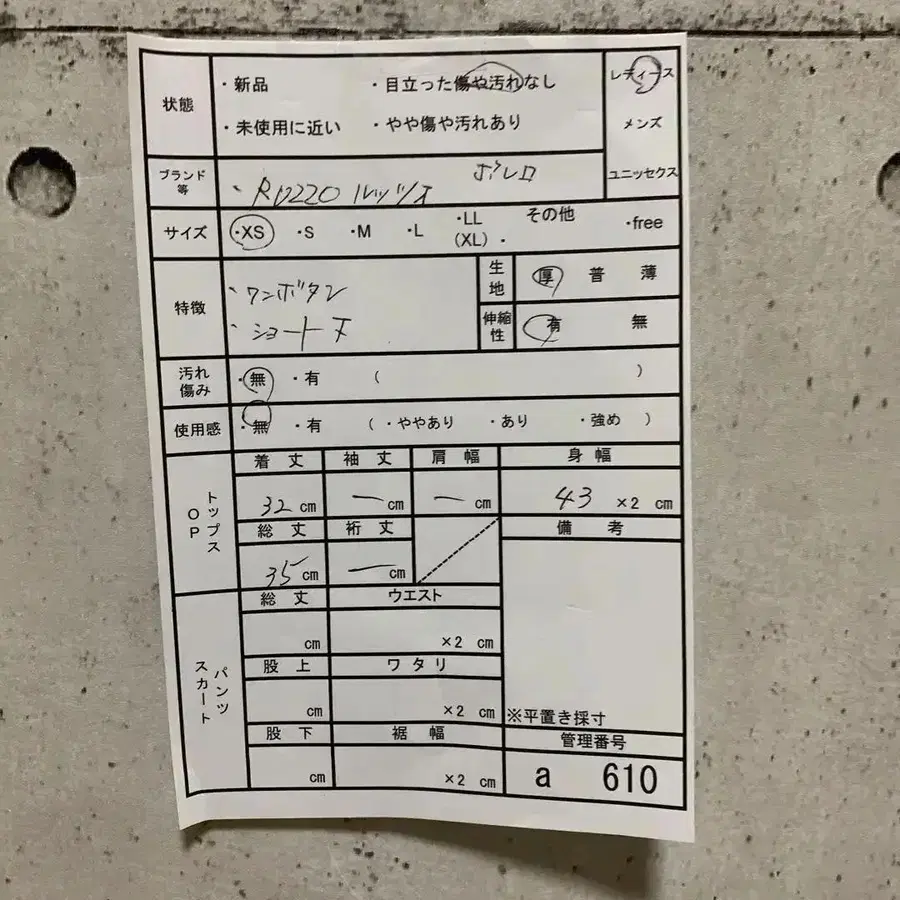 状態 ・新品 ・目立った傷や汚れなし レディース
・未使用に近い ・やや傷や汚れあり メンズ
ブランド等 ・ ルッツォ ボレロ ユニセックス
サイズ ・XS ・S ・M ・L ・LL(XL)・ その他 ・free
特徴 ・ワンボタン 生地 厚 普 薄
・ショート丈 伸縮性 有 無
汚れ傷み ・無 ・有 ( )
使用感 ・無 ・有 (・ややあり ・あり ・強め )
トップス OP
着丈 袖丈 肩幅 身幅
32 cm ー cm ー cm 43 ×2 cm
総丈 裄丈 備考
35 cm ー cm
パンツ スカート
総丈 ウエスト
cm ×2 cm
股上 ワタリ
cm ×2 cm ※平置き採寸
股下 裾幅 管理番号
cm ×2 cm a 610